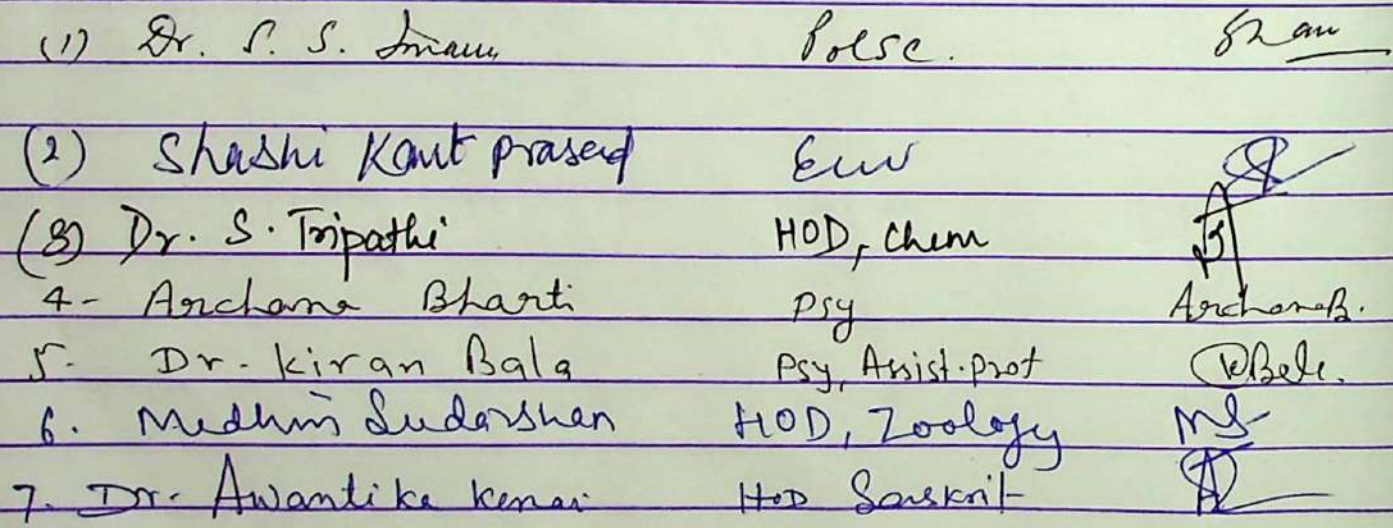 (1) Dr. S. S. Imam Polsc.
(2) Shashi Kant prasad
(3) Dr. S. Tripathi HOD, Chem
4- Archana Bharti Psy Archana B.
5. Dr. Kiran Bala Psy, Assist. prof KBala.
6. Medhni Sudarshan HOD, Zoology MS
7. Dr. Awantika Kumari HOD Sanskrit